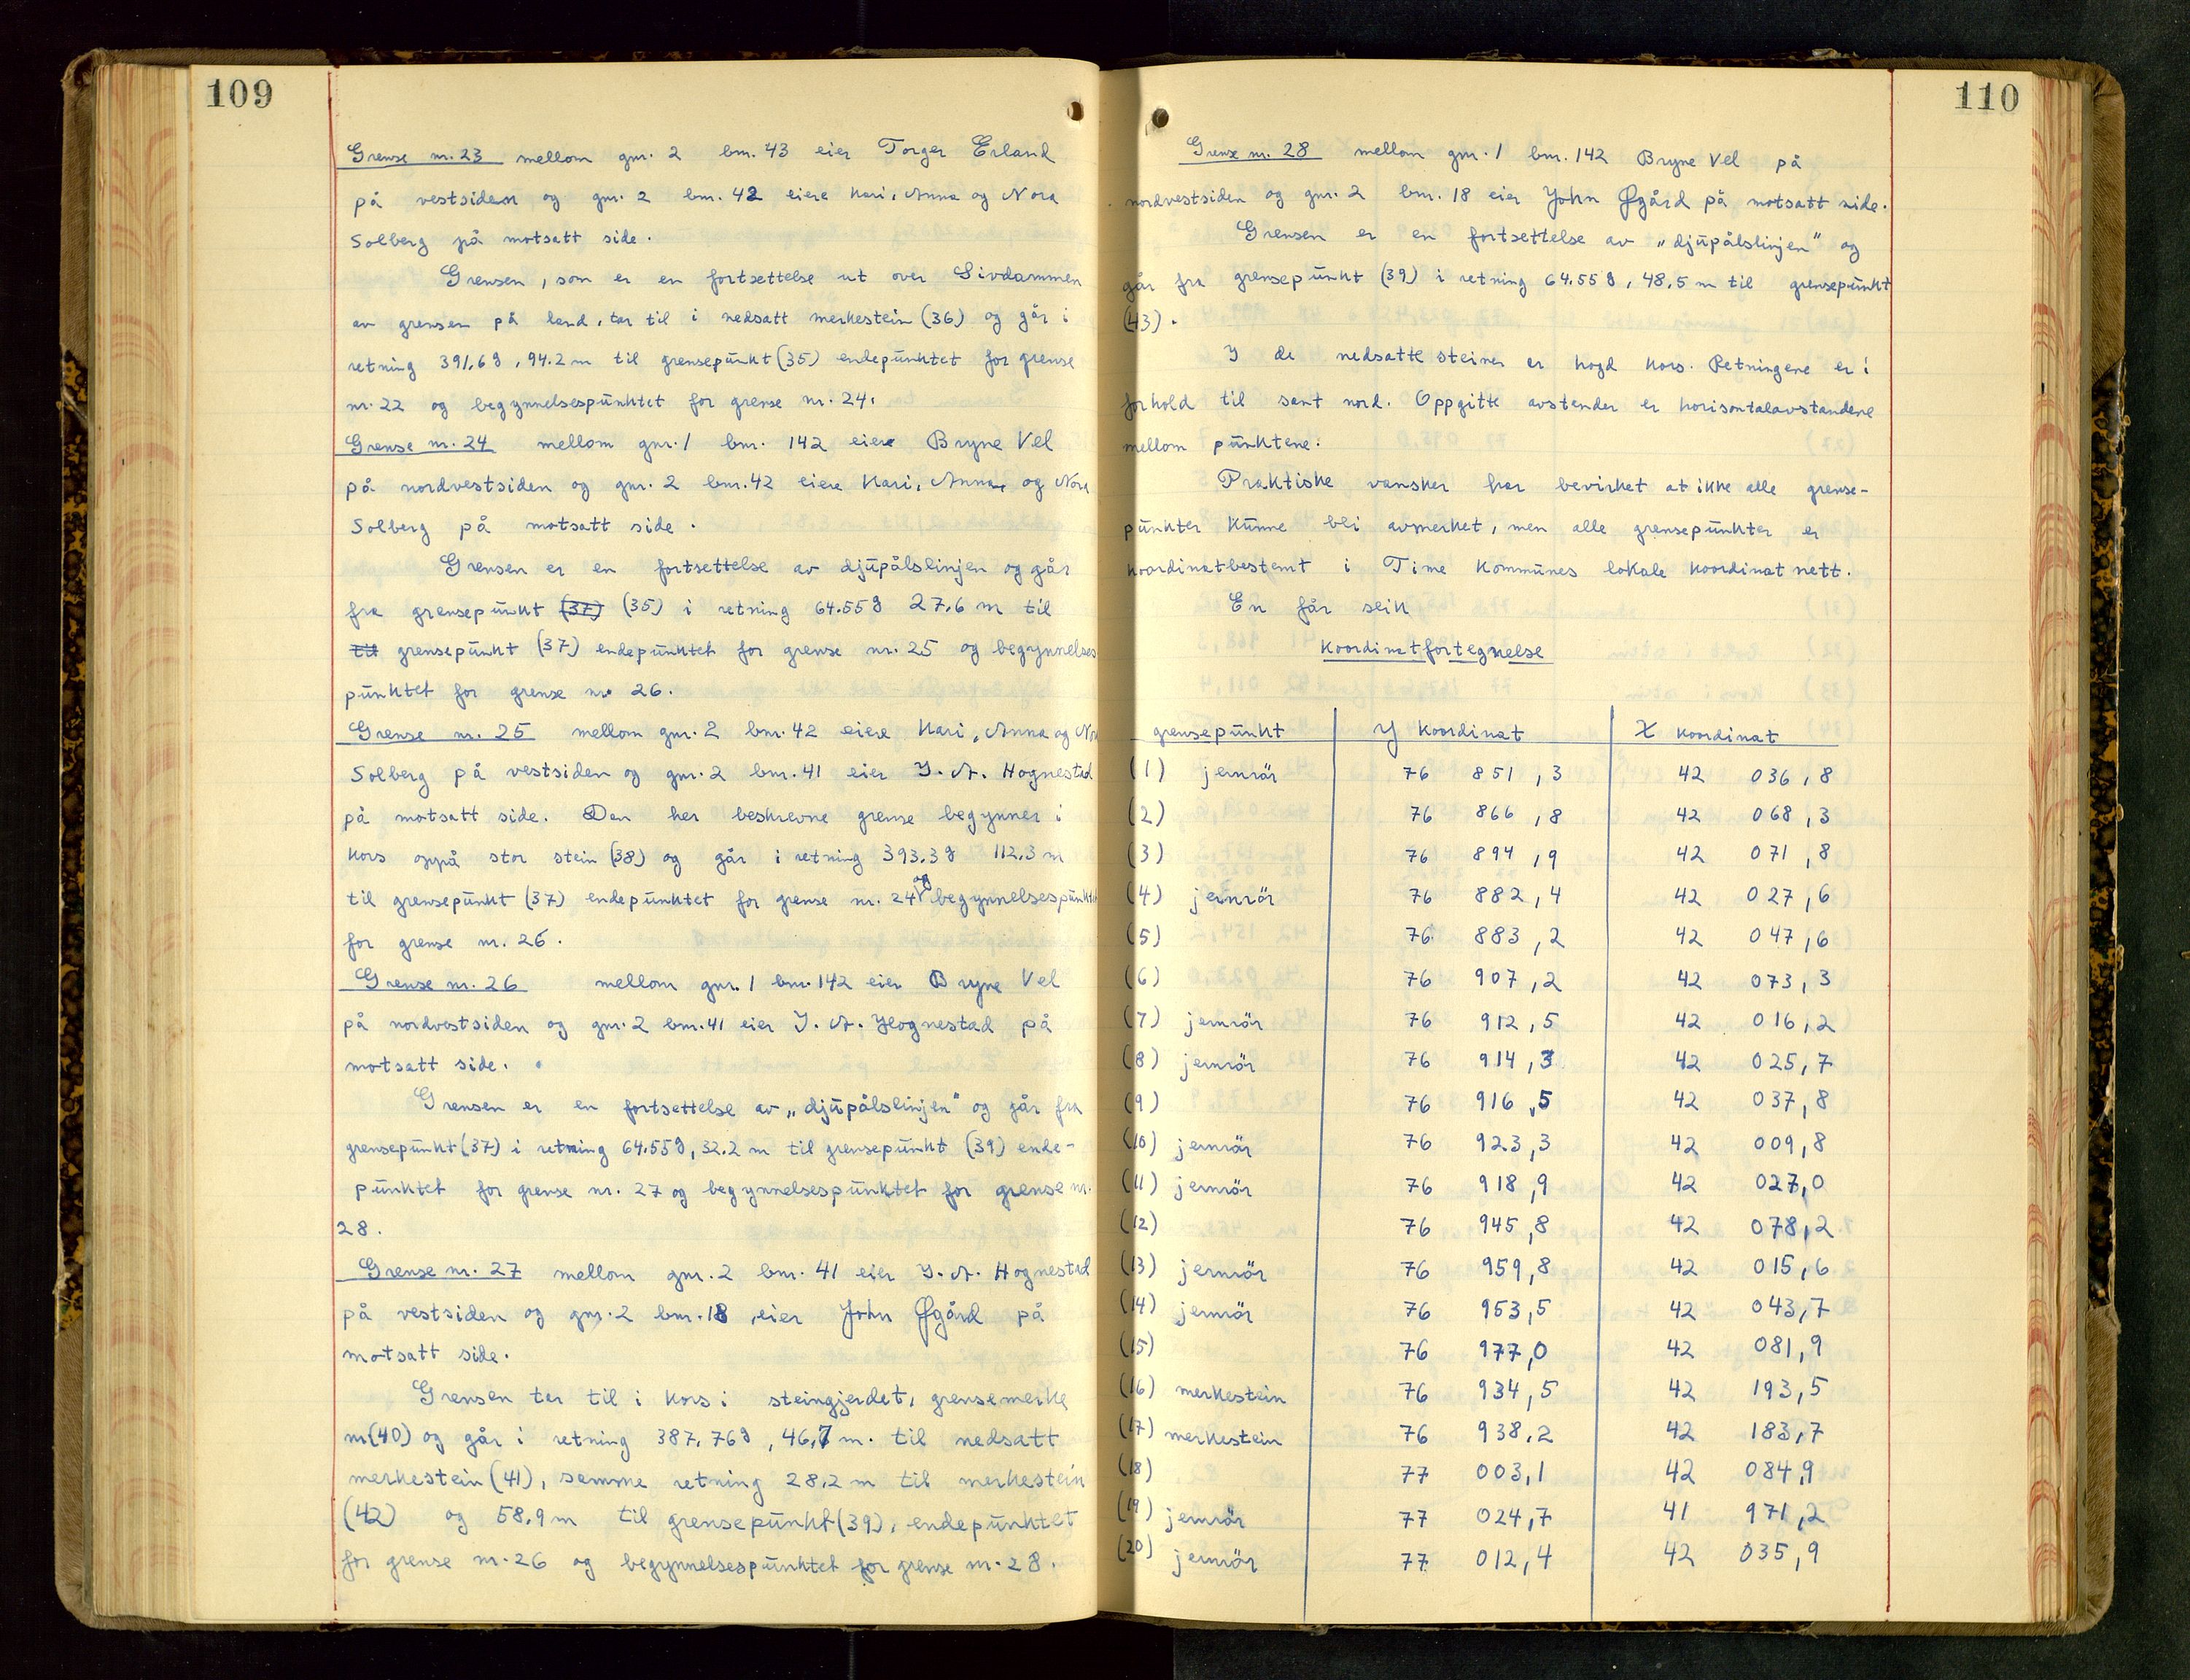 109
Grense nr. 23 mellom gnr. 2 bnr. 43 eier Torger Erland
på vestsiden og gnr. 2 bnr. 42 eiere Kari, Anna og Nora
Solberg på motsatt side.
Grensen, som er en fortsettelse ut over Sivdammen
av grensen på land, tar til i nedsatt merkestein (36) og går i
retning 391.6g, 94.2 m til grensepunkt (35) endepunktet for grense
nr. 22 og begynnelsespunktet for grense nr. 24.
Grense nr. 24 mellom gnr. 1 bnr. 142 eiere Bryne Vel
på nordvestsiden og gnr. 2 bnr. 42 eiere Kari, Anna, og Nora
Solberg på motsatt side.
Grensen er en fortsettelse av djupålslinjen og går
fra grensepunkt (37) (35) i retning 64.55g 27.6 m til
til grensepunkt (37) endepunktet for grense nr. 25 og begynnelses
punktet for grense nr. 26.
Grense nr. 25 mellom gnr. 2 bnr. 42 eiere Kari, Anna og Nora
Solberg på vestsiden og gnr. 2 bnr. 41 eier J. A. Hognestad
på motsatt side. Den her beskrevne grense begynner i
kors oppå stor stein (38) og går i retning 393.3g 112.3 m
til grensepunkt (37) endepunktet for grense nr. 24 og begynnelsespunktet
for grense nr. 26.
Grense nr. 26 mellom gnr. 1 bnr. 142 eier Bryne Vel
på nordvestsiden og gnr. 2 bnr. 41 eier J. A. Hognestad på
motsatt side.
Grensen er en fortsettelse av „djupålslinjen" og går fra
grensepunkt (37) i retning 64.55g, 32.2 m til grensepunkt (39) ende-
punktet for grense nr. 27 og begynnelsespunktet for grense nr.
28.
Grense nr. 27 mellom gnr. 2 bnr. 41 eier J. A. Hognestad
på vestsiden og gnr. 2 bnr. 18, eier John Øgård på
motsatt side.
Grensen tar til i kors i steingjerdet, grensemerke
nr (40) og går i retning 387.76g, 46,7 m. til nedsatt
merkestein (41), samme retning 28,2 m til merkestein
(42) og 58.9 m til grensepunkt (39), endepunktet
for grense nr. 26 og begynnelsespunktet for grense nr. 28.
110
Grense nr. 28 mellom gnr. 1 bnr. 142 Bryne Vel på
nordvestsiden og gnr. 2 bnr. 18 eier John Øgård på motsatt side.
Grensen er en fortsettelse av „djupålslinjen" og
går fra grensepunkt (39) i retning 64.55g, 48.5 m til grensepunkt
(43).
I de nedsatte steiner er hogd kors. Retningene er i
forhold til sant nord. Oppgitte avstander er horisontalavstandene
mellom punktene.
Praktiske vansker har bevirket at ikke alle grense-
punkter kunne bli avmerket, men alle grensepunkter er
koordinatbestemt i Time Kommunes lokale koordinatnett.
En får slik
Koordinatfortegnelse
grensepunkt Y koordinat X koordinat
(1) jernrör 76 851,3 42 036,8
(2) 76 866,8 42 068,3
(3) 76 894,9 42 071,8
(4) jernrör 76 882,4 42 027,6
(5) 76 883,2 42 047,6
(6) 76 907,2 42 073,3
(7) jernrör 76 912,5 42 016,2
(8) jernrör 76 914,3 42 025,7
(9) 76 916,5 42 037,8
(10) jernrör 76 923,3 42 009,8
(11) jernrör 76 918,9 42 027,0
(12) 76 945,8 42 078,2
(13) jernrör 76 959,8 42 015,6
(14) jernrör 76 953,5 42 043,7
(15) 76 977,0 42 081,9
(16) merkestein 76 934,5 42 193,5
(17) merkestein 76 938,2 42 183,7
(18) 77 003,1 42 084,9
(19) jernrör 77 024,7 41 971,2
(20) jernrör 77 012,4 42 035,9